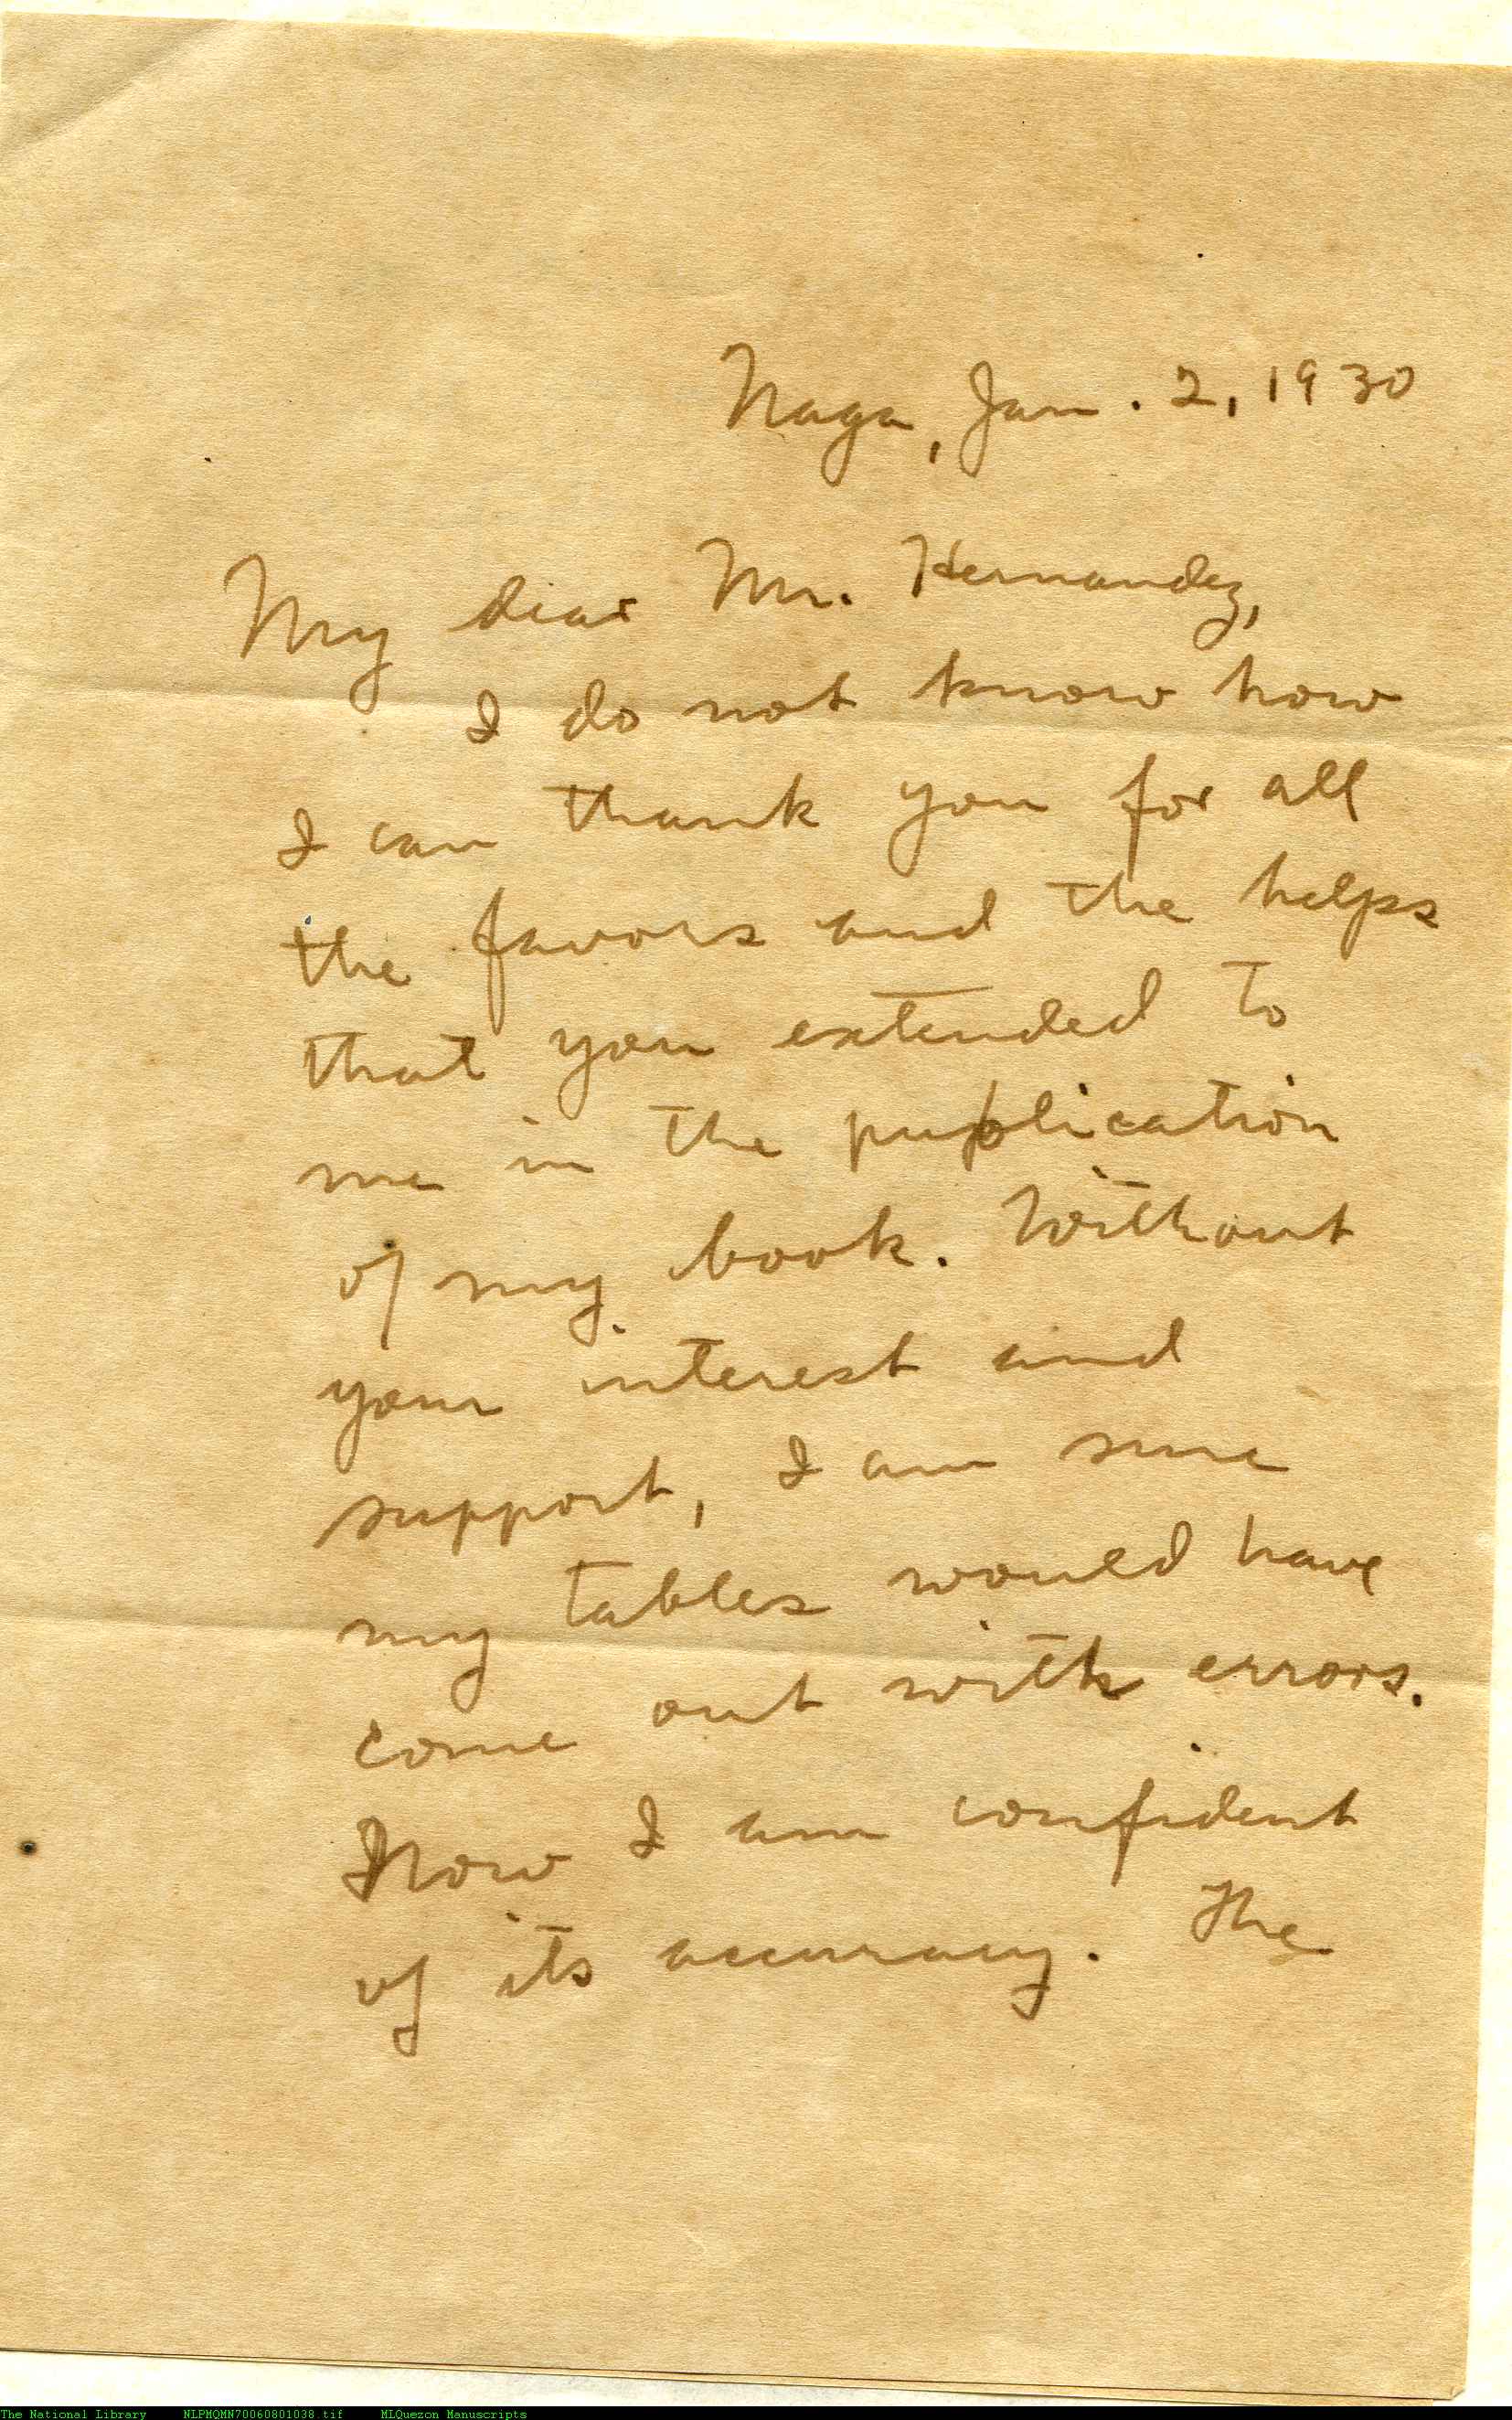 Naga, Jan. 2, 1930
My dear Mr. Hernandez,
I do not know how
I can thank you for all
the favors and the helps
that you extended to
me in the publication
of my book. Without
your interest and
support, I am sure
my tables would have
come out with errors.
Now I am confident
of its accuracy. The
The National Library NLPMQMN70060801038.tif MLQuezon Manuscripts